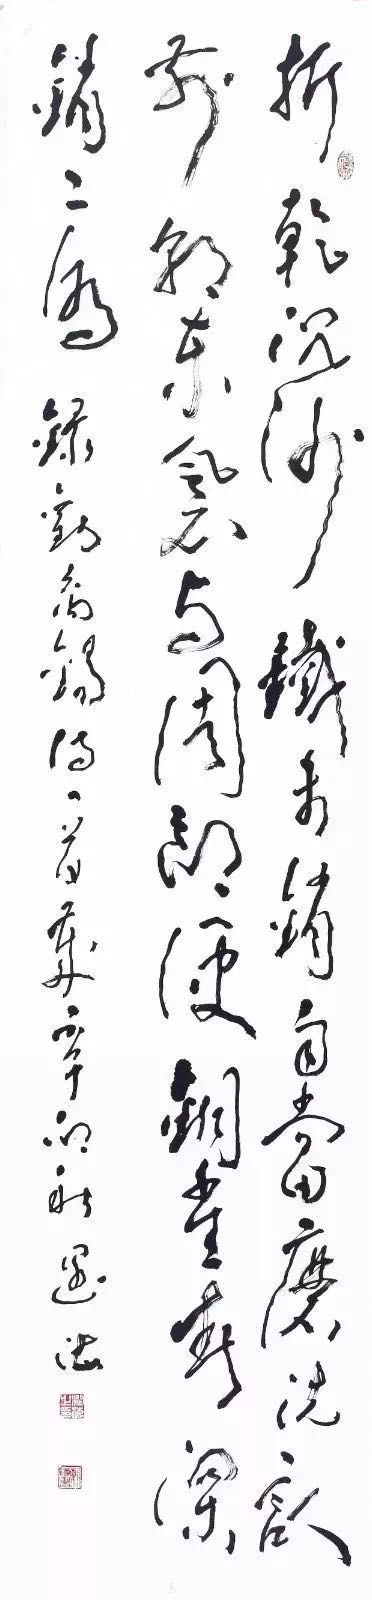 折戟沉沙鐵未銷自將磨洗認
前朝東風不與周郎便銅雀春深
鎖二喬 錄劉禹錫詩一首歲辛卯秋